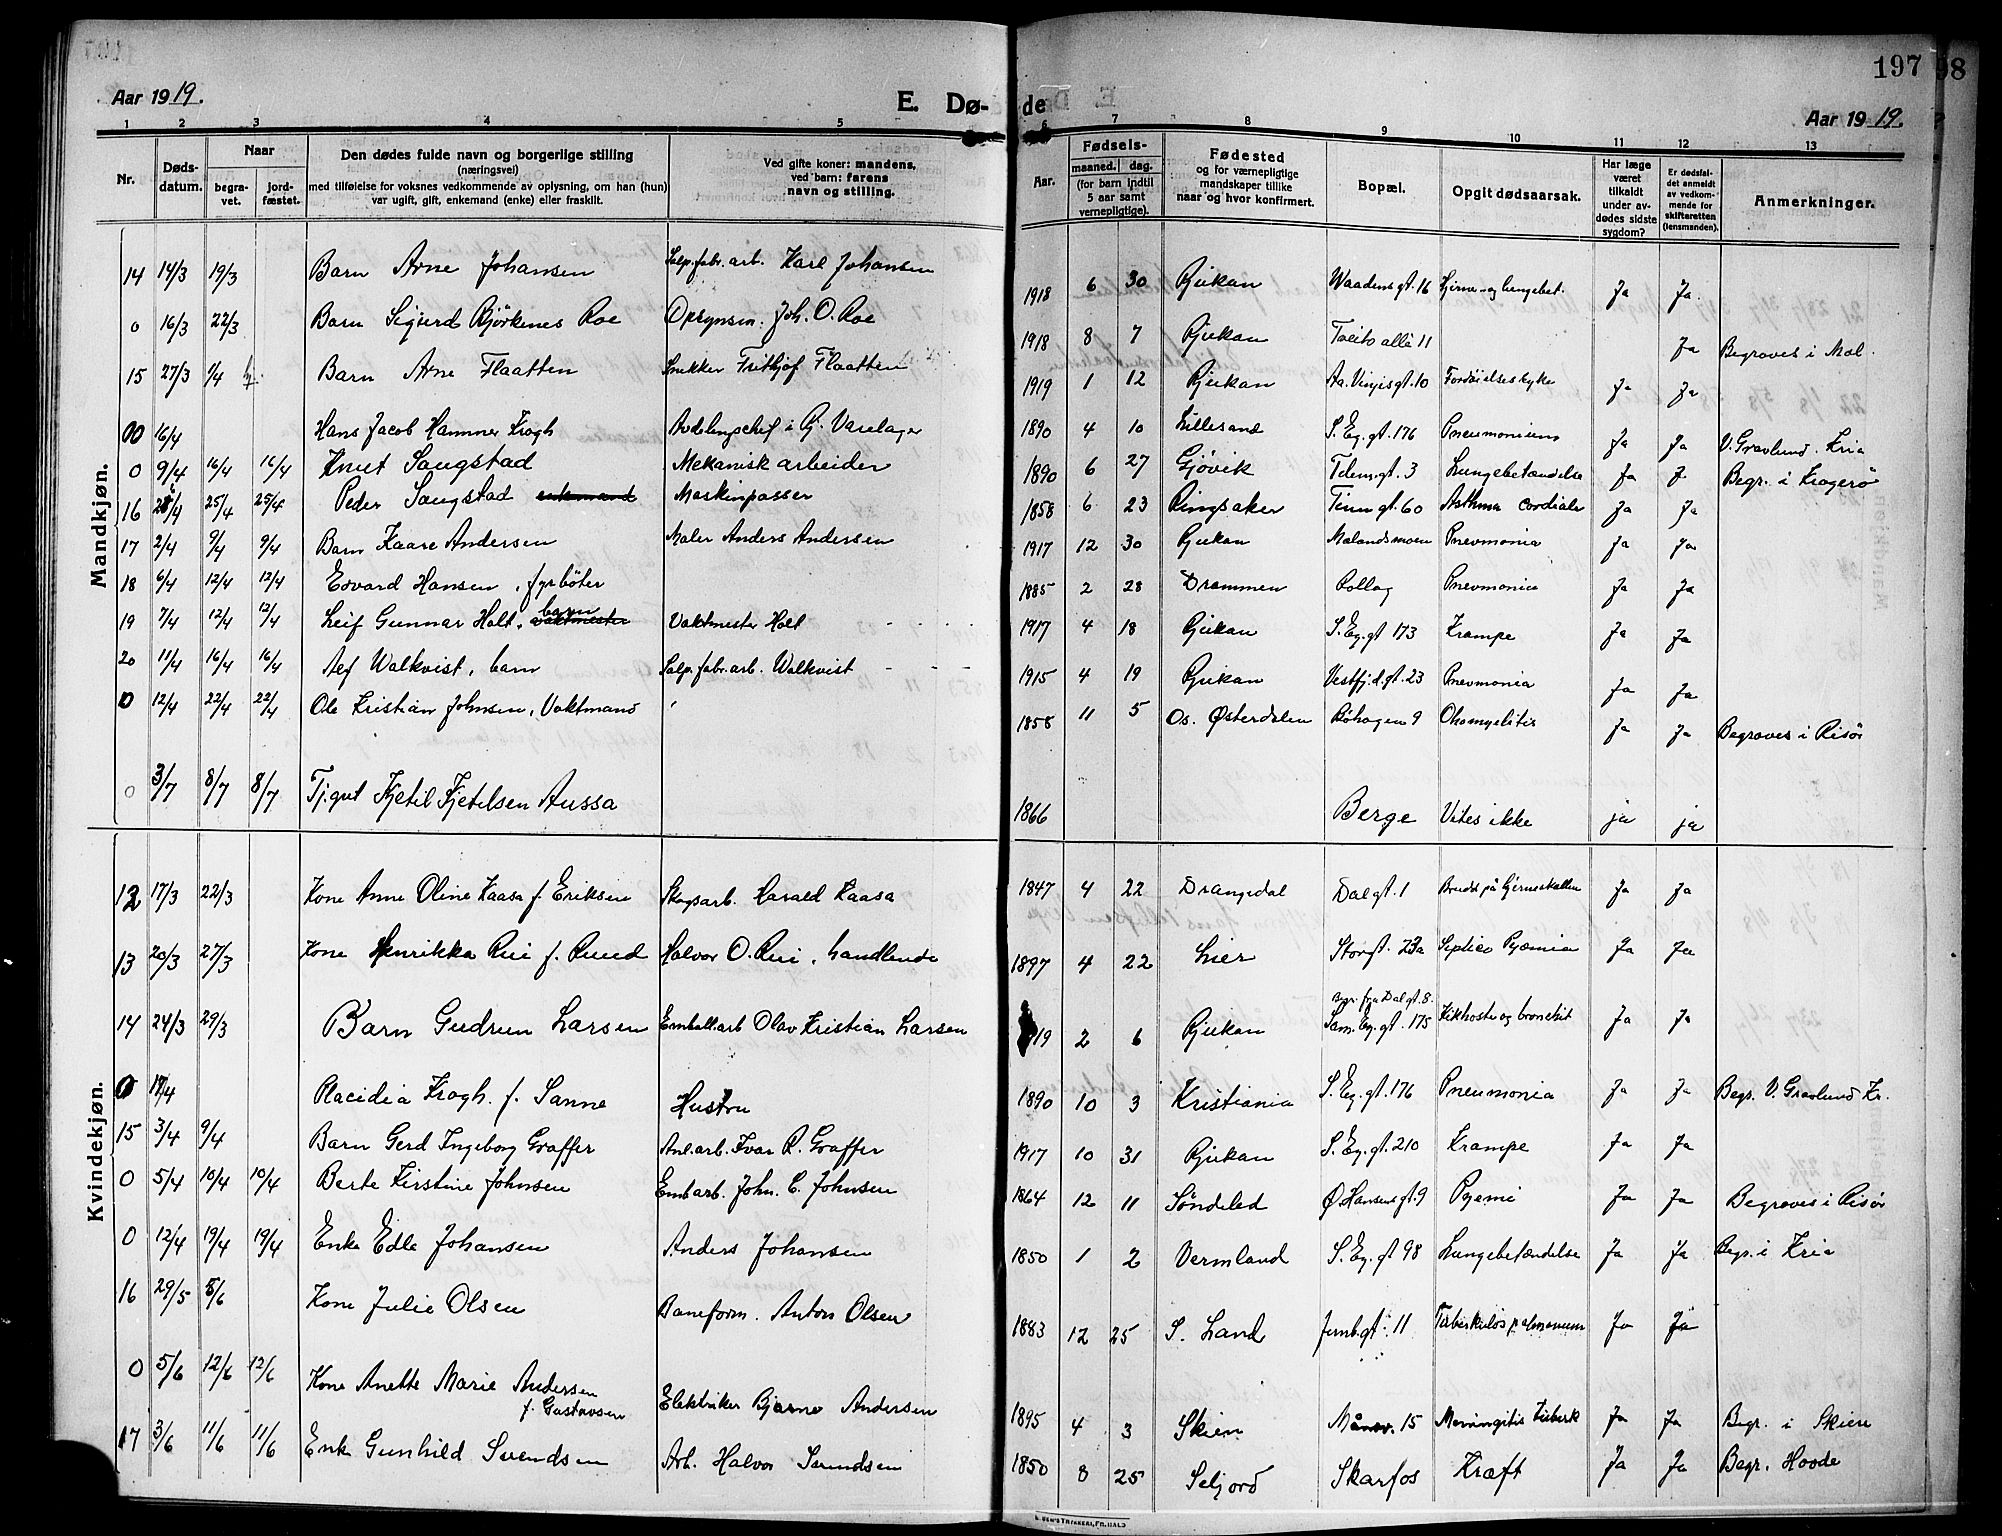 197 98
Aar 1919. E. Dø- de Aar 1919.
1 2 3 4 5 6 7 8 9 10 11 12 13
Nr. Døds-datum. Naar begra-vet. jord-fæstet. Den dødes fulde navn og borgerlige stilling (næringsvei) med tilføielse for voksnes vedkommende av oplysning, om han (hun) var ugift, gift, enkemand (enke) eller fraskilt. Ved gifte koner: mandens, ved barn: farens navn og stilling. Aar. Fødsels- maaned. dag. (for barn indtil 5 aar samt vernepligtige). Fødested og for værnepligtige mandskaper tillike naar og hvor konfirmert. Bopæl. Opgit dødsaarsak. Har læge været tilkaldt under av-dødes sidste sygdom? Er dødsfal-det anmeldt av vedkom-mende for skifteretten (lensmanden). Anmerkninger.
Mandkjøn.
14 14/3 19/3 Barn Arne Johansen Salp.fabr.arb. Karl Johansen 1918 6 30 Rjukan Waadens gt. 16 Hjerne- og lungebet. Ja Ja.
0 16/3 22/3 Barn Sigurd Bjørkenes Roe Opsynsm. Joh. O. Roe 1918 8 7 Rjukan Tveits allé 11 Ja Begraves i Mæl.
15 27/3 1/4 Barn Arne Flaatten Snekker Frithjof Flaatten 1919 1 12 Rjukan Aa. Vinjes gt. 10 Fordøielsessyke Ja Ja
0 16/4 Hans Jacob Hammer Krogh Avdelingschef i Rj. Varelager 1890 4 10 Lillesand S. Eg. gt. 176 Ja Ja V. Gravlund. Kria
0 9/4 16/4 16/4 Knut Saugstad Mekanisk arbeider 1890 6 27 Gjøvik Telem.gt. 3 Lungebetændelse Ja J. Begr. i Kragerø
16 25/4 25/4 Peder Saugstad enkemand Maskinpasser 1858 6 23 Ringsaker Tinn gt. 60 Asthma cordiale Ja Ja
17 2/4 9/4 9/4 Barn Kaare Andersen Maler Anders Andersen 1917 12 30 Rjukan Mælandsmoen Pnevmonia Ja Ja
18 6/4 12/4 12/4 Edvard Hansen, fyrbøter 1885 2 28 Drammen Rollag Pnevmonia Ja Ja
19 7/4 12/4 12/4 Leif Gunnar Holt, vaktmester barn Vaktmester Holt 1917 4 18 Rjukan S. Eg. gt 173 Krampe Ja Ja
20 11/4 16/4 16/4 Alf Walkvist, barn Salp.fabr.arb. Walkvist 1915 4 19 Rjukan Vestfj.d.gt. 23 Pnevmonia Ja Ja
0 12/4 22/4 22/4 Ole Kristian Johnsen, Vaktmand 1858 11 5 Os. Østerdalen Bøhagen 9 Ja Ja Begraves i Risør
0 3/7 8/7 8/7 Tj.gut Kjetil Kjetilsen Aussa 1866 Berge Vites ikke ja ja
Kvindekjøn.
12 17/3 22/3 Kone Anne Oline Kaasa f. Eriksen Skogsarb. Harald Kaasa 1847 4 22 Drangedal Dal gt. 1 Brudd på hjerneskallen Ja Ja
13 20/3 27/3 Kone Henrikka Rui f. Ruud Halvor O. Rui, handlende 1897 4 22 Lier Storgt. 23a Septico Pyæmia Ja Ja
14 24/3 29/3 Barn Gudrun Larsen Emball.arb Olav Kristian Larsen 1919 2 6 Rjukan begr. fra Dal gt. 8. Sam. Eg. gt. 175 Kikhoste og bronchit Ja Ja
0 17/4 Placidia Krogh. f. Sanne Hustru 1890 10 3 Kristiania S. Eg. gt. 176 Pneumonia Ja Ja Begr. V. Gravlund Kr.
15 3/4 9/4 Barn Gerd Ingeborg Graffer Anl.arb. Ivar R. Graffer 1917 10 31 Rjukan S. Eg. gt. 210 Krampe Ja Ja
0 5/4 10/4 10/4 Berte Kirstine Johnsen Emb arb. John. C. Johnsen 1864 12 11 Søndeled Ø. Hansens gt. 9 Pyæmi Ja Ja Begraves i Risør
0 12/4 19/4 19/4 Enke Edle Johansen Anders Johansen 1850 1 2 Vermland S. Eg. gt 98 Lungebetændelse Ja Ja Begr. i Kria
16 29/5 5/6 Kone Julie Olsen Baneform. Anton Olsen 1883 12 25 S. Land Jernb.gt. 11 Tuberkulos pulmonum Ja Ja
0 5/6 12/6 12/6 Kone Anette Marie Andersen f. Gustavsen Elektriker Bjarne Andersen 1895 4 3 Skien Månev. 15 Meningitis tuberk Ja Ja Begr. i Skien
17 3/6 11/6 11/6 Enke Gunhild Svendsen Arb. Halvor Svendsen 1850 8 25 Seljord Skarfos Kræft Ja Ja Begr. Hovde